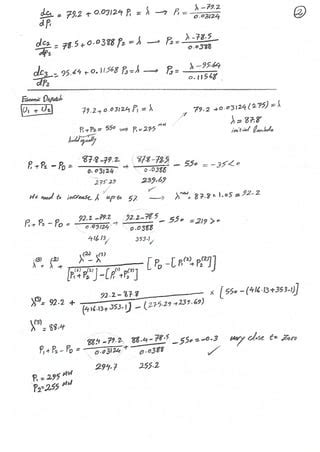 ②
dc₁/dP₁ = 79.2 + 0.03124 P₁ = λ → P₁ = (λ - 79.2)/0.03124
dc₂/dP₂ = 78.5 + 0.0388 P₂ = λ → P₂ = (λ - 78.5)/0.0388
dc₃/dP₂ = 95.64 + 0.11568 P₃ = λ → P₃ = (λ - 95.64)/0.11568
Economic Dispatch
U₁ + U₂
79.2 + 0.03124 P₁ = λ
79.2 + 0.03124 (275) = λ
P₁ + P₂ = 550 ⟹ P₁ = 275 MW
λ = 87.8
load equally
initial lambda
P₁ + P₂ - P_D = (87.8 - 79.2)/0.03124 + (87.8 - 78.5)/0.0388 - 550 = -35 < 0
275.29 239.69
We need to increase λ up to 5% → λ^new = 87.8 × 1.05 = 92.2
P₁ + P₂ - P_D = (92.2 - 79.2)/0.03124 + (92.2 - 78.5)/0.0388 - 550 = 219 > 0
416.13 353.1
λ⁽³⁾ = λ⁽²⁾ + (λ⁽²⁾ - λ⁽¹⁾)/([P₁⁽²⁾ + P₂⁽²⁾] - [P₁⁽¹⁾ + P₂⁽¹⁾]) [P_D - [P₁⁽²⁾ + P₂⁽²⁾]]
λ⁽³⁾ = 92.2 + (92.2 - 87.8)/((416.13 + 353.1) - (275.29 + 239.69)) × [550 - (416.13 + 353.1)]
λ⁽³⁾ = 88.4
P₁ + P₂ - P_D = (88.4 - 79.2)/0.03124 + (88.4 - 78.5)/0.0388 - 550 = -0.3 very close to Zero ✓
294.7 255.2
P₁ = 295 MW
P₂ = 255 MW